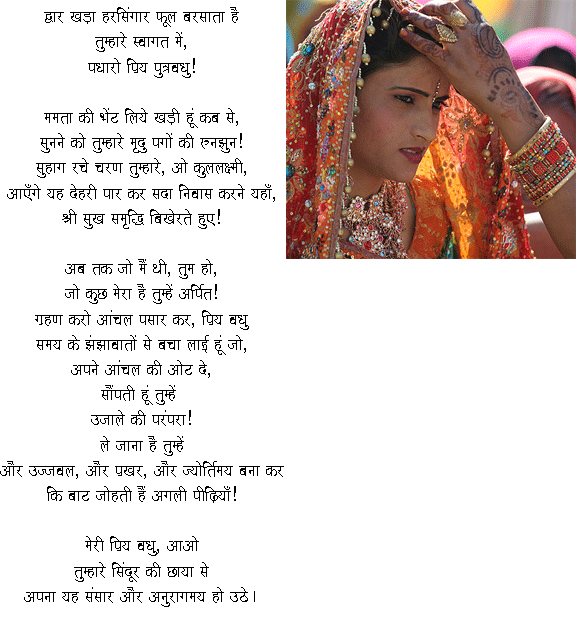 द्वार खड़ा हरसिंगार फूल बरसाता है
तुम्हारे स्वागत में,
पधारो प्रिय पुत्रवधु!
ममता की भेंट लिये खड़ी हूं कब से,
सुनने को तुम्हारे मृदु पगों की रुनझुन!
सुहाग रचे चरण तुम्हारे, ओ कुललक्ष्मी,
आएँगे यह देहरी पार कर सदा निवास करने यहाँ,
श्री सुख समृद्धि बिखेरते हुए!
अब तक जो मैं थी, तुम हो,
जो कुछ मेरा है तुम्हें अर्पित!
ग्रहण करो आंचल पसार कर, प्रिय वधु
समय के झंझावातों से बचा लाई हूं जो,
अपने आंचल की ओट दे,
सौंपती हूं तुम्हें
उजाले की परंपरा!
ले जाना है तुम्हें
और उज्जवल, और प्रखर, और ज्योर्तिमय बना कर
कि बाट जोहती हैं अगली पीढ़ियाँ!
मेरी प्रिय वधु, आओ
तुम्हारे सिंदूर की छाया से
अपना यह संसार और अनुरागमय हो उठे।